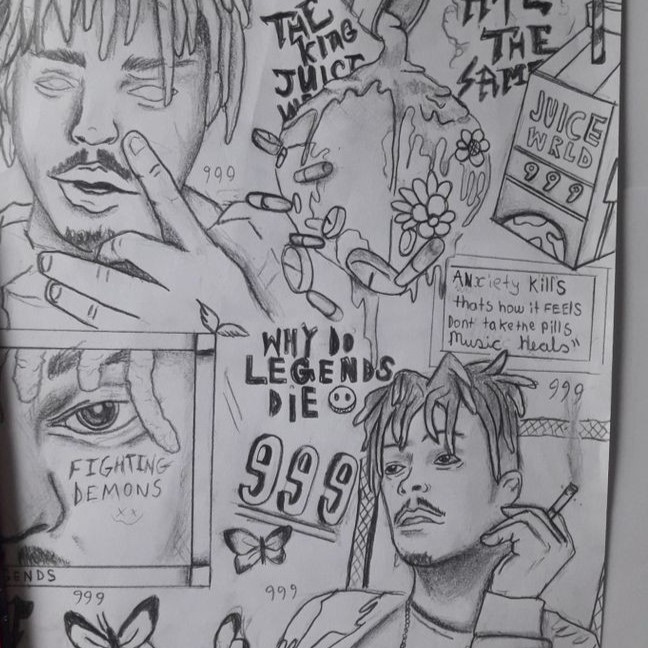 THE
KING
JUICE
THE
SAME
JUICE
WRLD
999
999
ANxiety kills
thats how it FEELS
Dont take the pills
Music Heals"
WHY DO
LEGENDS
DIE
999
FIGHTING
DEMONS
999
GENDS
999
999